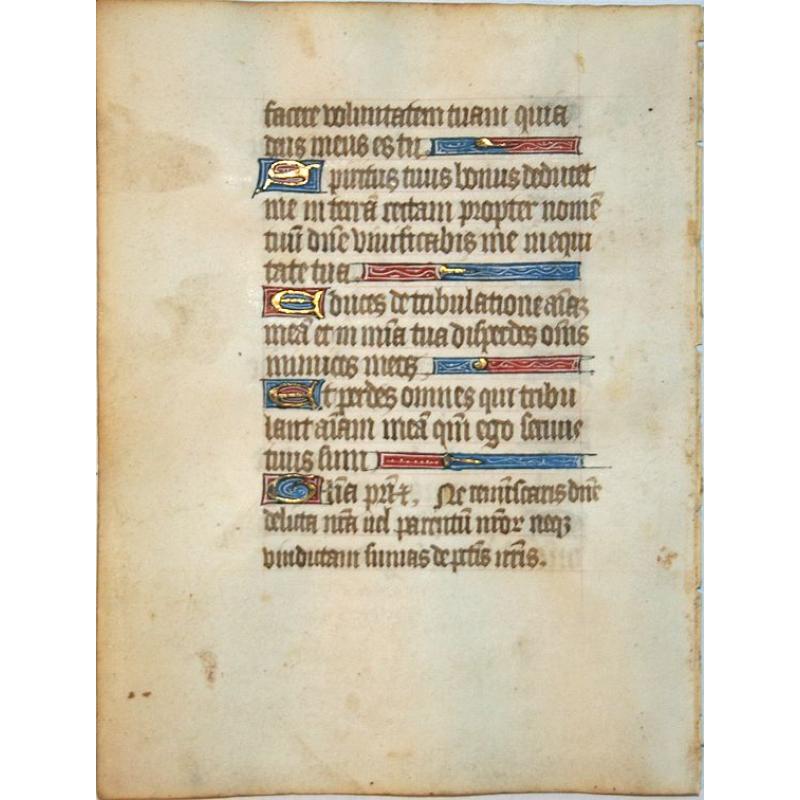 facere voluntatem tuam quia
deus meus es tu
Spiritus tuus bonus deducet
me in terrā rectam propter nomē
tuū dñe vivificabis me in equi
tate tua
Educes de tribulatione aīaʒ
meā et in mīa tua disperdes oīns
inimicos meos
Et perdes omnes qui tribu
lant aīam meā qm̄ ego servus
tuus sum
Glīa prīꝛ. Ne reminiscaris dn̄e
delicta nr̄a vel parentū nr̄oꝝ neqꝫ
vindictam sumas de pctīs nr̄is.